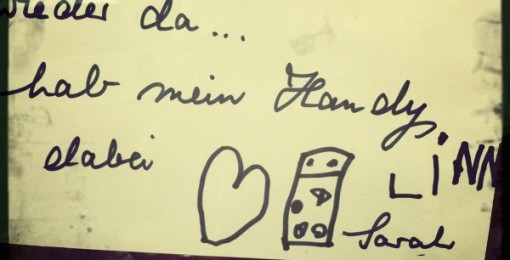 wieder da...
hab mein Handy
dabei
LINN
Sarah